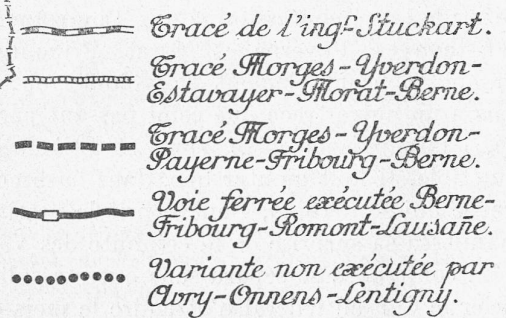 Tracé de l'ingr Stuckart.
Tracé Morges-Yverdon-
Estavayer-Morat-Berne.
Tracé Morges-Yverdon-
Payerne-Fribourg-Berne.
Voie ferrée exécutée Berne-
Fribourg-Romont-Lausañe.
Variante non exécutée par
Avry-Onnens-Lentigny.